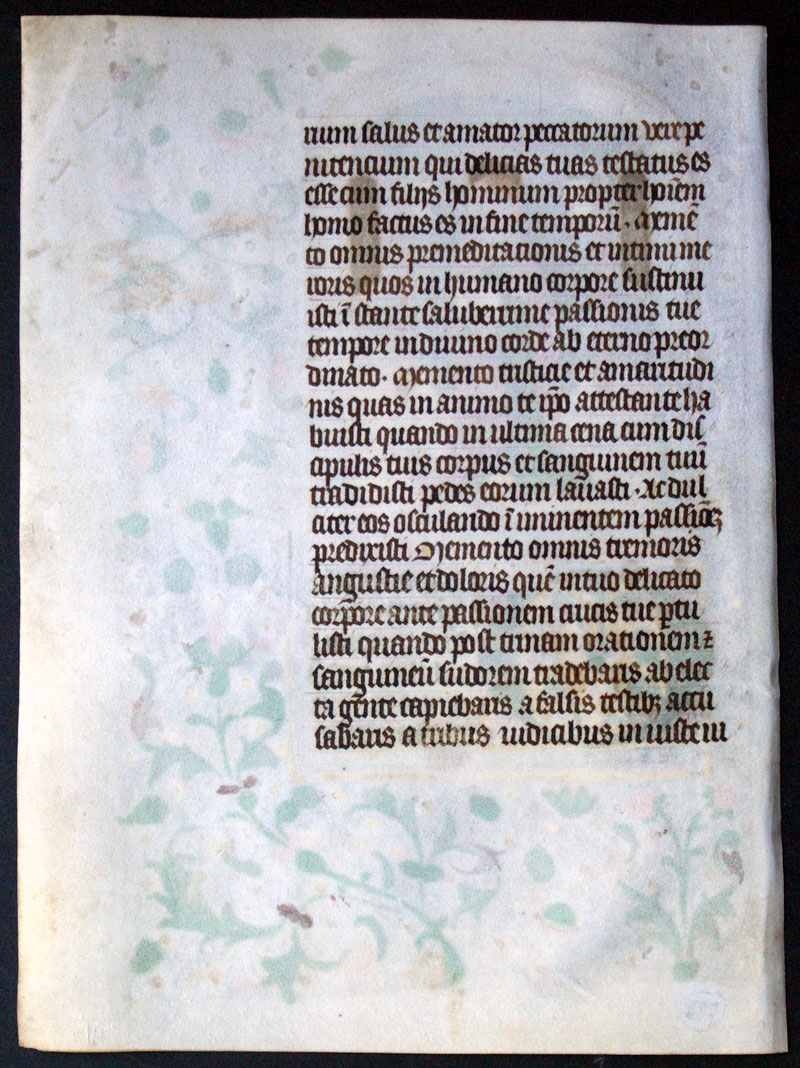 num salus et amator peccatorum vere pe
nitencium qui delicias tuas testatus es
esse cum filijs hominum propter hoīem
homo factus es in fine temporū. Memē
to omnis premeditacionis et intimi me
roris quos in humano corpore sustinu
isti ī stante saluberrime passionis tue
tempore in divino corde ab eterno preor
dinato. Memento tristicie et amaritudi
nis quas in animo te ip̄o attestante ha
buisti quando in ultima cena cum dis
cipulis tuis corpus et sanguinem tuū
tradidisti pedes eorum lavasti. Ac dul
citer eos osculando īminentem passiōꝫ
predixisti Memento omnis tremoris
angustie et doloris quē in tuo delicato
corpore ante passionem crucis tue ptu
listi quando post trinam orationem ⁊
sanguineū sudorem tradebaris ab elec
ta gēnte capiebaris a falsis testibꝫ accu
sabaris a tribus iudicibus iniuste iu